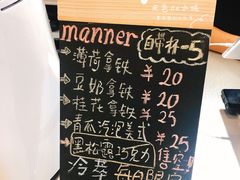 manner 自带杯-5
薄荷拿铁 ¥20
豆奶拿铁 ¥20
桂花拿铁 ¥25
青瓜汽泡美式 ¥25
黑松露巧克力 售空!
冷萃 每日限定